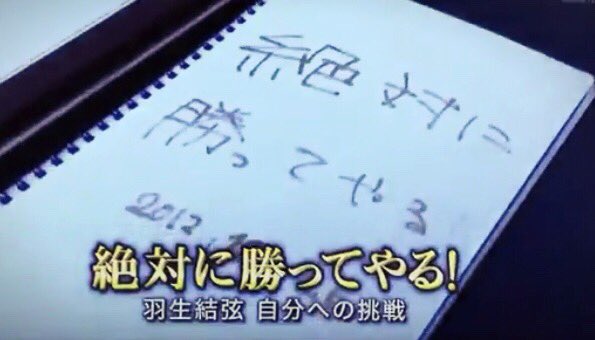 絶対に
勝ってやる
2012
絶対に勝ってやる!
羽生結弦 自分への挑戦